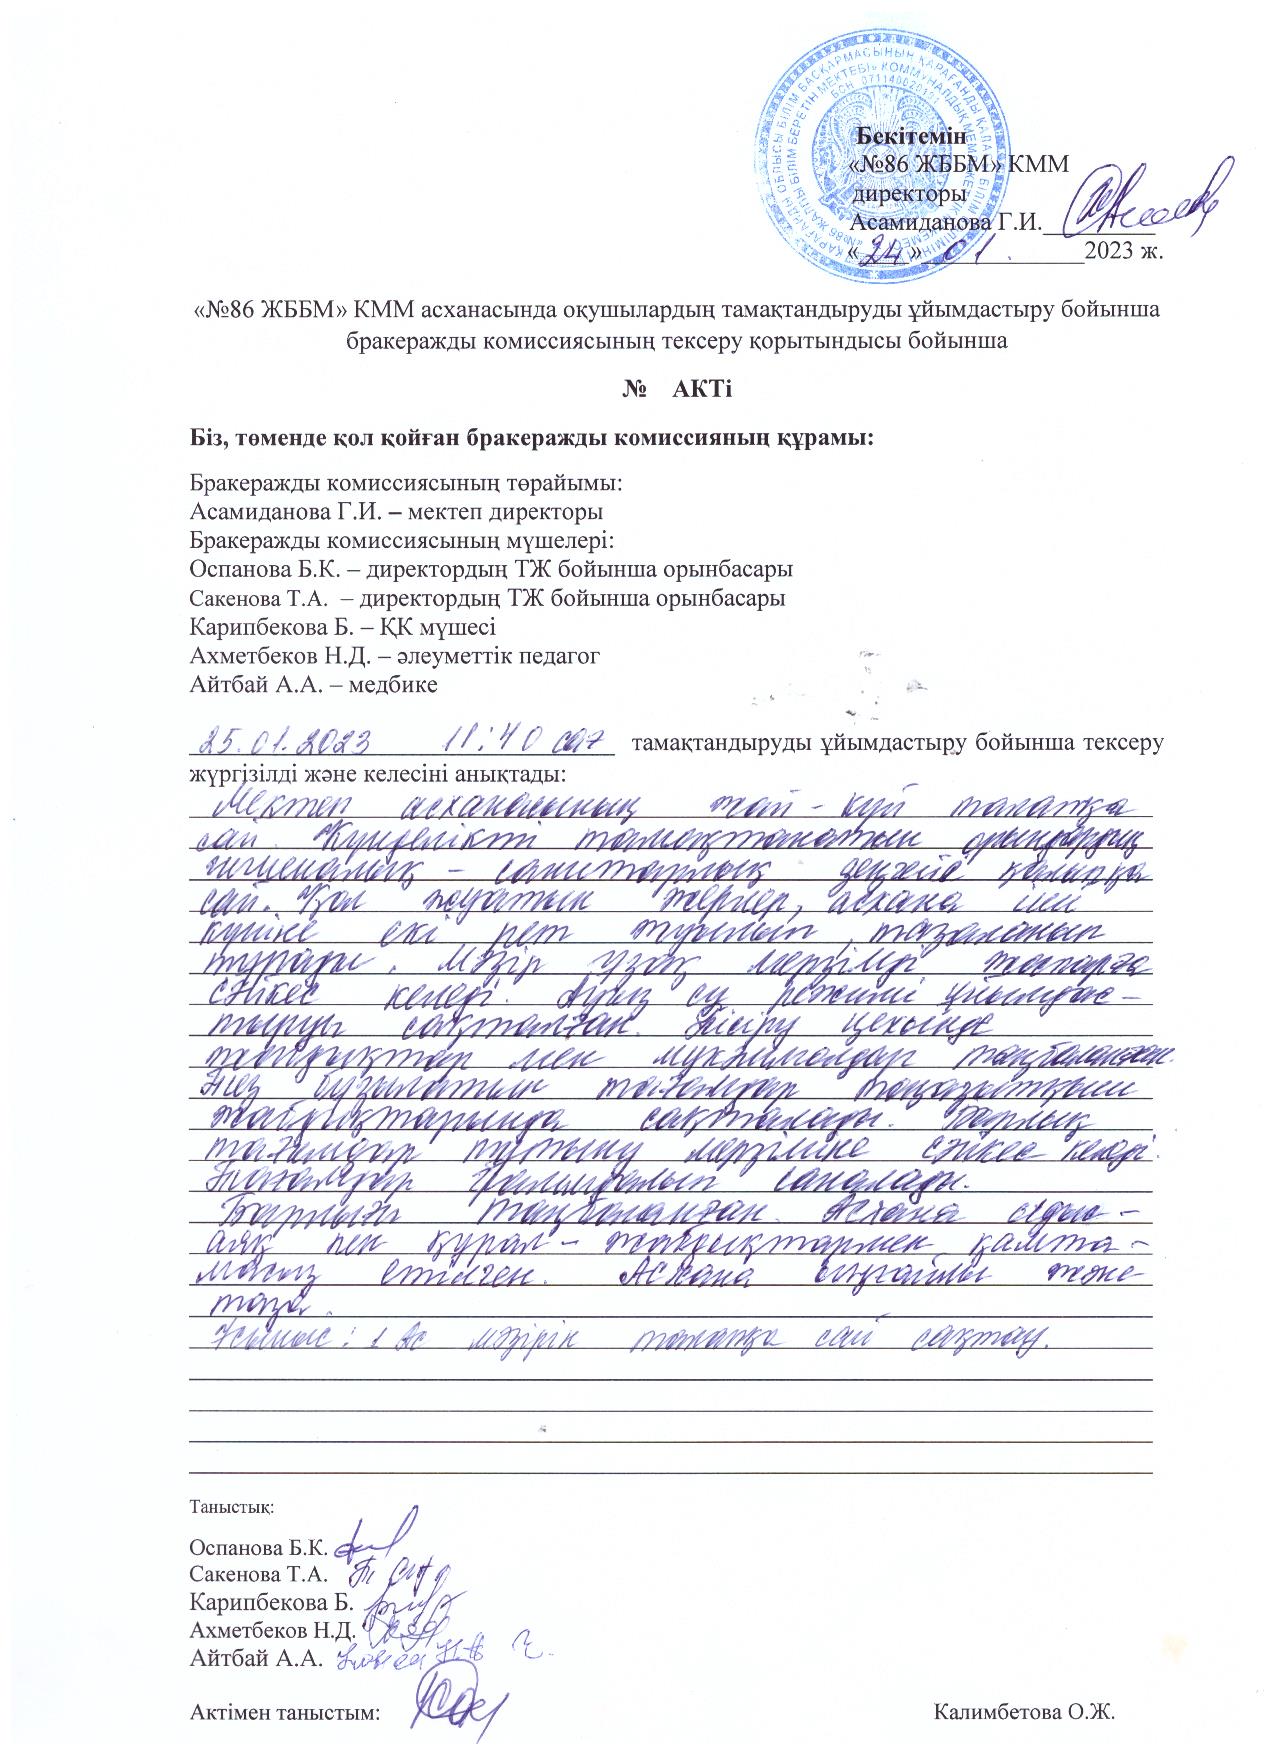 Бекітемін
«№86 ЖББМ» КММ
директоры
Асамиданова Г.И.
«24» 01. 2023 ж.
«№86 ЖББМ» КММ асханасында оқушылардың тамақтандыруды ұйымдастыру бойынша
бракеражды комиссиясының тексеру қорытындысы бойынша
№ АКТі
Біз, төменде қол қойған бракеражды комиссияның құрамы:
Бракеражды комиссиясының төрайымы:
Асамиданова Г.И. – мектеп директоры
Бракеражды комиссиясының мүшелері:
Оспанова Б.К. – директордың ТЖ бойынша орынбасары
Сакенова Т.А. – директордың ТЖ бойынша орынбасары
Карипбекова Б. – ҚК мүшесі
Ахметбеков Н.Д. – әлеуметтік педагог
Айтбай А.А. – медбике
25.01.2023 11:40 сағ тамақтандыруды ұйымдастыру бойынша тексеру
жүргізілді және келесіні анықтады:
Мектеп асханасының жай-күйі талапқа
сай. Күнделікті тамақтанатын орындардың
гигиеналық – санитарлық деңгейі қалыпқа
сай. Қол жуатын жерлер, асхана іші
күніне екі рет жуылып, тазаланып
тұрады. Мәзір ұзақ мерзімді жоспарға
сәйкес келеді. Ауыз су режимі ұйымдас-
тыруы сақталған. Пісіру цехында
жабдықтар мен мүкәммалдар таңбаланған.
Тез бұзылатын тағамдар тоңазытқыш
жабдықтарында сақталады. Барлық
тағамдар тұтыну мерзіміне сәйкес келеді.
Тағамдар саналады.
Барлығы таңбаланған. Асхана ыдыс-
аяқ пен құрал-жабдықтармен қамта-
масыз етілген. Асхана ыңғайлы және
таза.
Ұсыныс: 1 Ас мәзірін талапқа сай сақтау.
Таныстық:
Оспанова Б.К.
Сакенова Т.А.
Карипбекова Б.
Ахметбеков Н.Д.
Айтбай А.А.
Актімен таныстым: Калимбетова О.Ж.